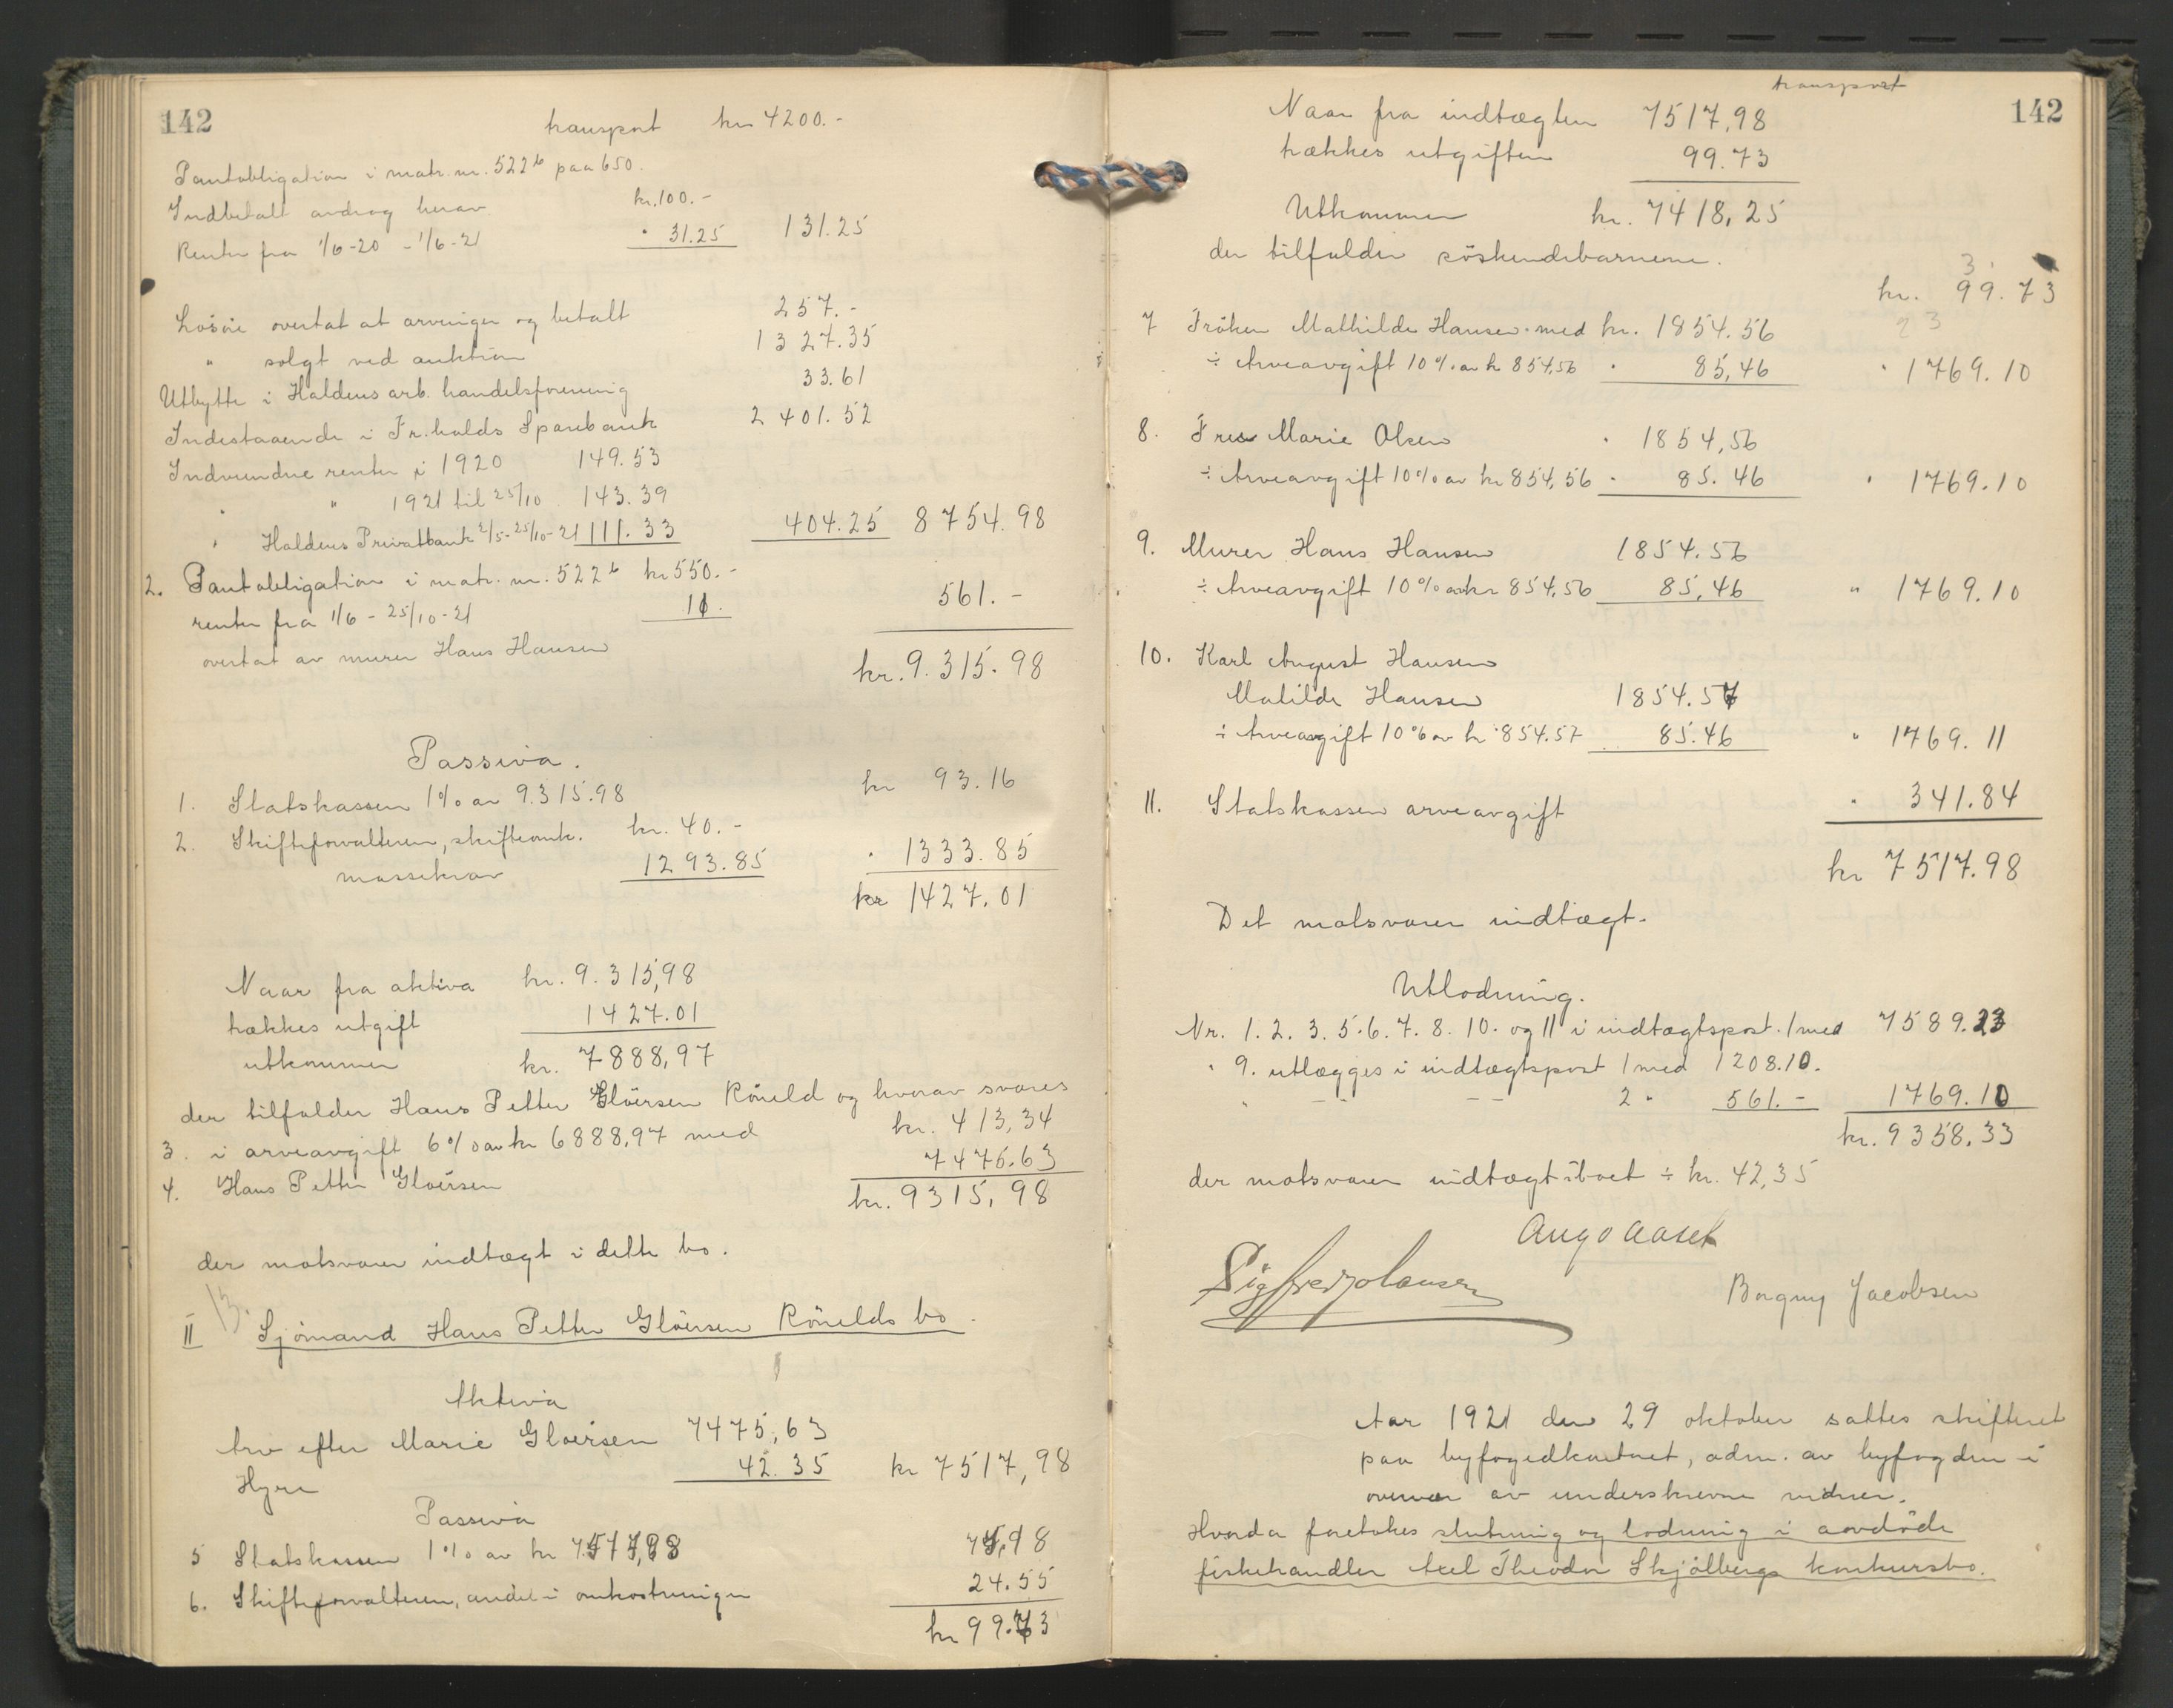 142
transport kr 4200.-
Pantobligation i matr. nr. 522b paa 650.
Indbetalt avdrag herav kr. 100.-
Renter fra 1/6-20 - 1/6-21 " 31.25 131.25
Løsøre overtat at arvinger og betalt 257.-
" solgt ved auktion 1327.35
Utbytte i Haldens arb. handelsforening 33.61
Indestaaende i Fr.halds Sparebank 2401.52
Indvundne renter i 1920 149.53
" " 1921 til 25/10 143.39
" Haldens Privatbank 2/5-25/10-21 111.33 404.25 8754.98
2. Pantobligation i matr. nr. 522b kr 550.-
renter fra 1/6 - 25/10-21 11. 561.-
overtat av murer Hans Hansen
kr. 9.315.98
Passiva.
1. Statskassen 1% av 9.315.98 kr 93.16
2. Skifteforvalteren, skifteomk. kr. 40.-
massekrav 1293.85 " 1333.85
kr 1427.01
Naar fra aktiva kr. 9.315,98
trækkes utgift 1427.01
utkommer kr. 7888,97
der tilfalder Hans Petter Gløersen Røneld og hvorav svares
3. i arveavgift 6% av kr 6888,97 med kr. 413,34
4. Hans Petter Gløersen 7475.63
kr. 9315,98
der motsvarer indtægt i dette bo.
13.
II Sjømand Hans Petter Gløersen Rønelds bo.
Aktiva
Arv efter Marie Gløersen 7475,63
Hyre 42.35 kr 7517,98
Passiva
5 Statskassen 1% av kr 7517,98 75,18
6. Skifteforvalteren, andel i omkostninger 24.55
kr 99.73
transport
142
Naar fra indtægten 7517,98
trækkes utgiften 99.73
Utkommer kr. 7418,25
der tilfalder søskendebarnene.
3.
kr. 99.73
23
7 Frøken Mathilde Hansen med kr. 1854.56
÷ Arveavgift 10% av kr 854,56 " 85,46 " 1769.10
8. Frue Marie Olsen " 1854,56
÷ Arveavgift 10% av kr 854,56 " 85.46 " 1769.10
9. Murer Hans Hansen 1854.56
÷ Arveavgift 10% av kr 854,56 85,46 " 1769.10
10. Karl August Hansen
Matilde Hansen 1854.57
÷ Arveavgift 10% av kr 854.57 85.46 " 1769.11
11. Statskassen arveavgift " 341.84
kr 7517.98
Det motsvarer indtægt.
Utlodning.
Nr. 1. 2. 3. 5. 6. 7. 8. 10. og 11 i indtægtspost. 1 med 7589.23
" 9. utlægges i indtægtspost 1 med 1208.10.
" -"- -- 2 " 561.- 1769.10
kr. 9358,33
der motsvarer indtægt i boet ÷ kr. 42,35
Aug Aaset
Sigfred Johansen
Borgny Jacobsen
Aar 1921 den 29 oktober sattes skifteret
paa byfogedkontoret, adm. av byfogden i
overvær av underskrevne vidner.
Hvorda foretokes slutning og lodning i avdøde
fiskehandler Axel Theodor Skjølbergs konkursbo.